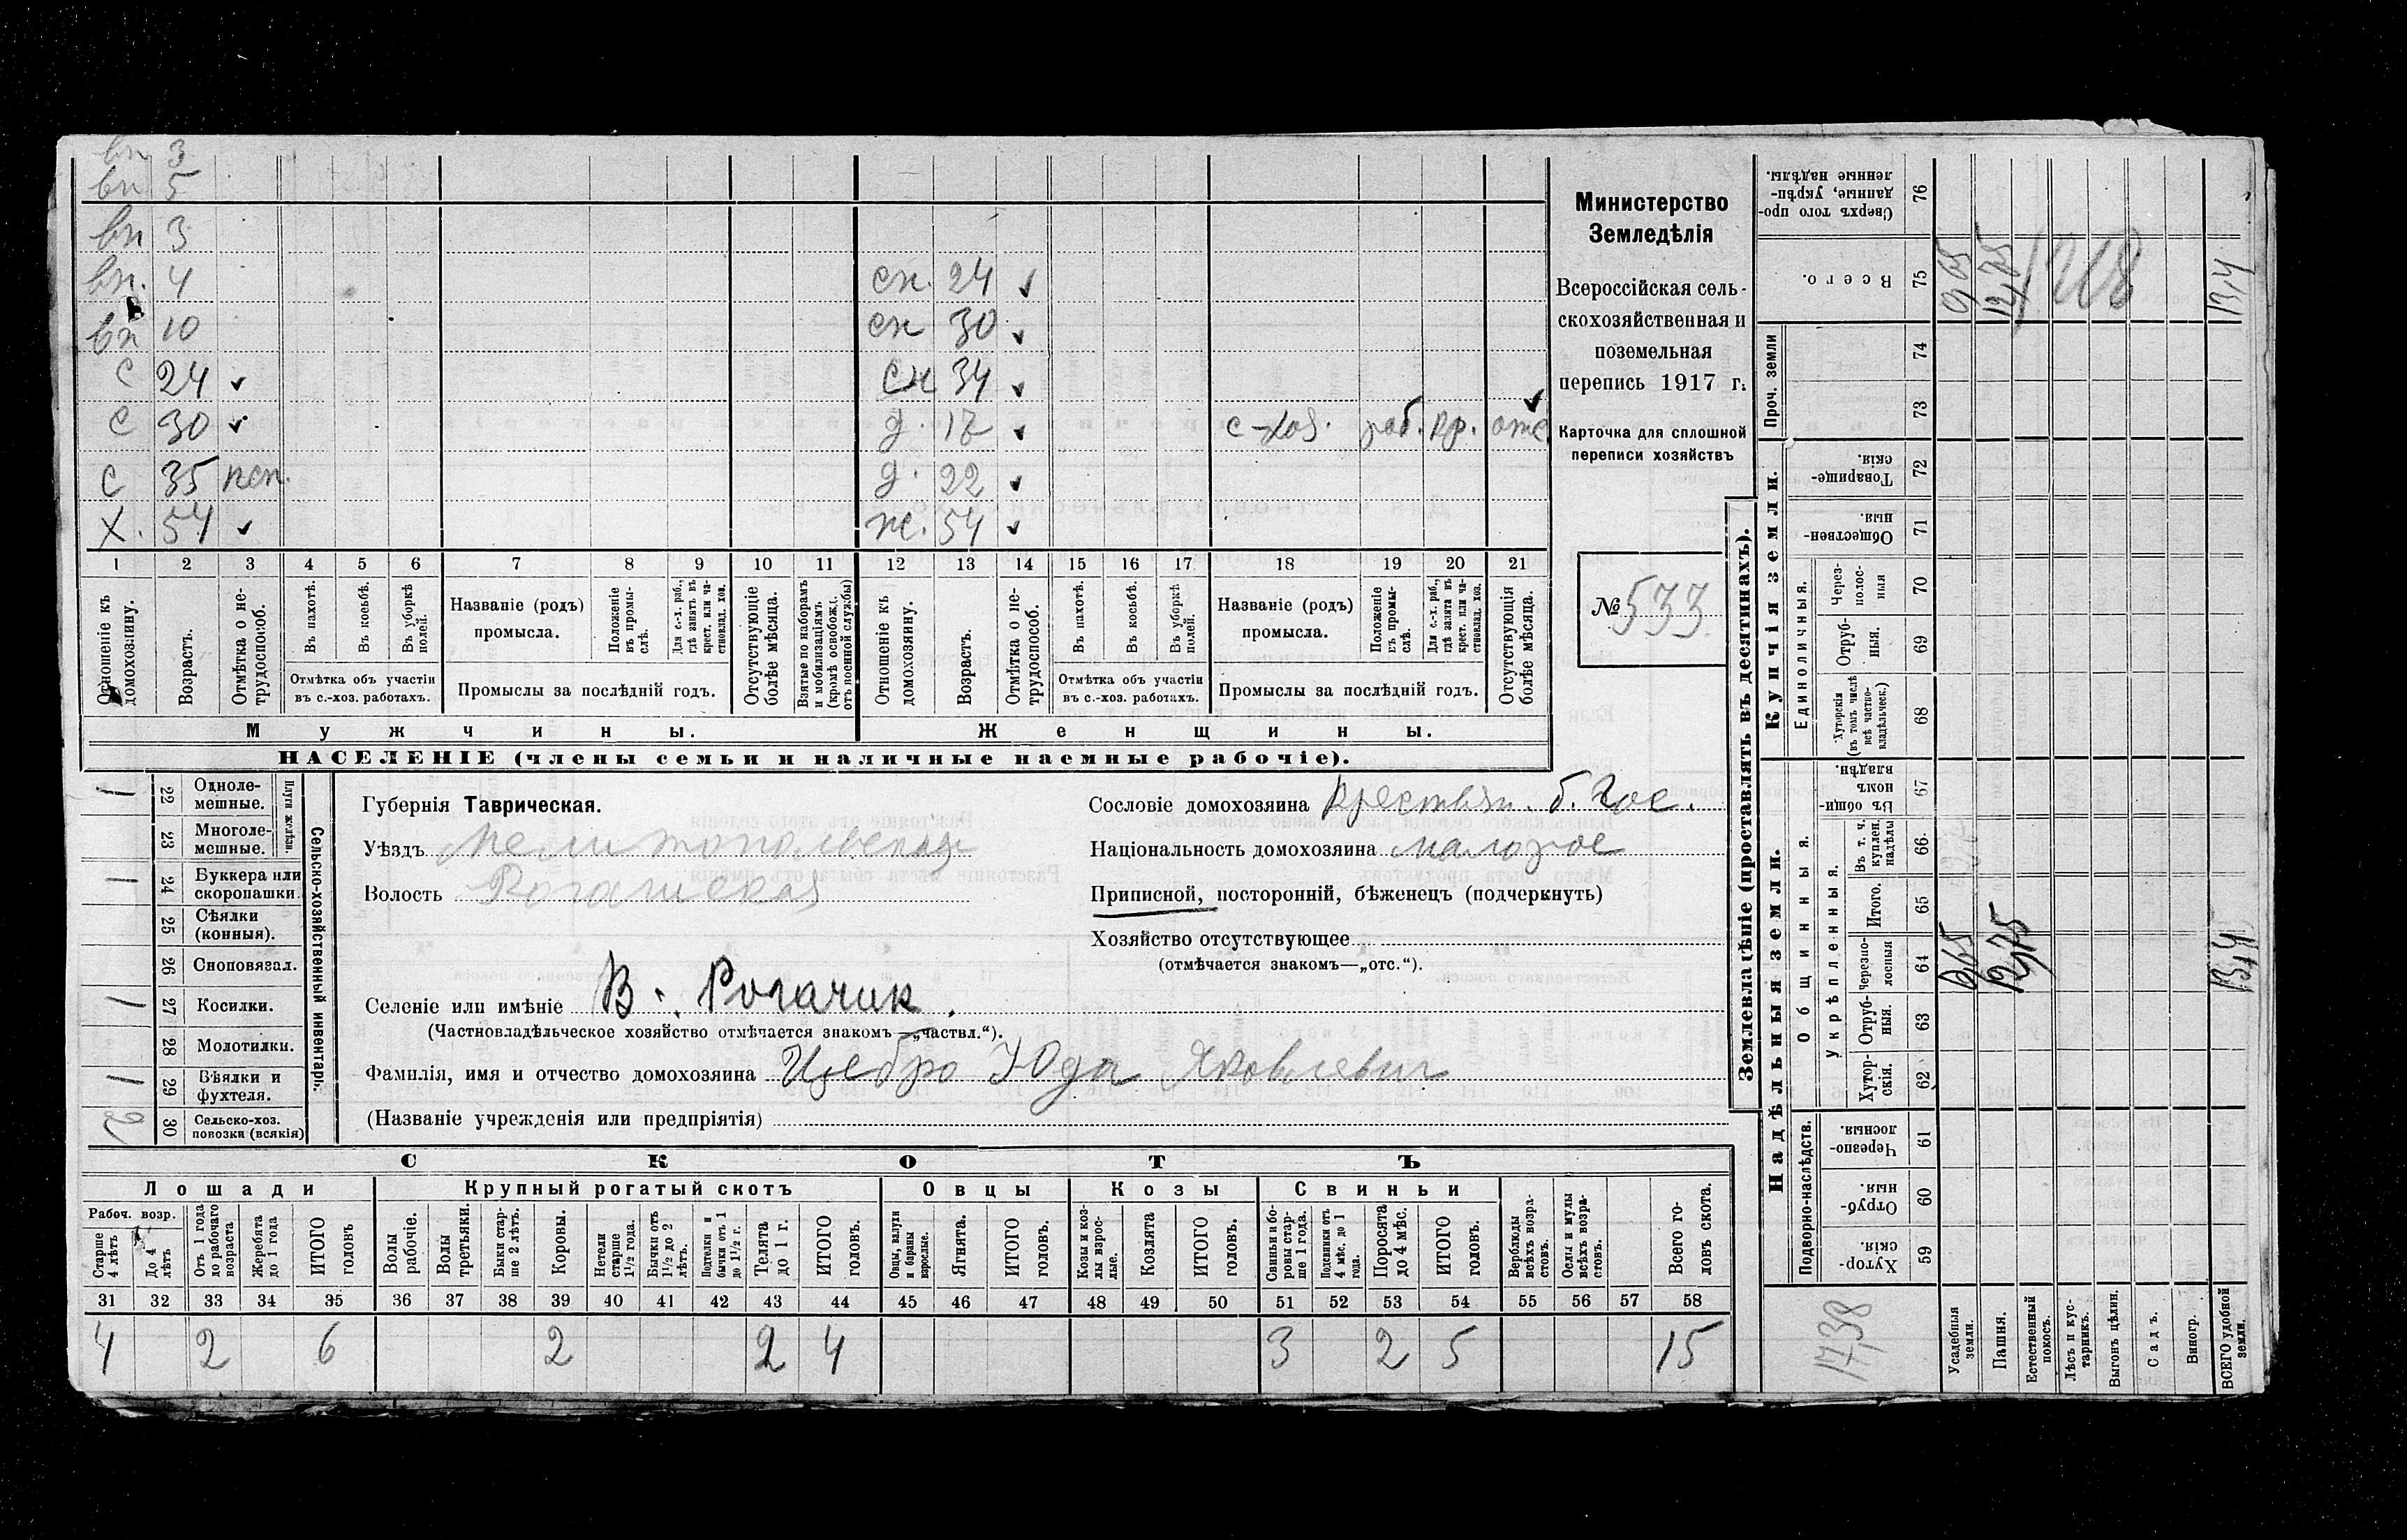 вн 3
вн 5
вн 3
вн. 4 сн. 24 ✓
вн 10 сн 30 ✓
с 24 ✓ сн 34 ✓
с 30 ✓ д. 17 ✓ с-хоз. раб. кр. отс ✓
с 35 нсп. д. 22 ✓
х. 54 ✓ ж. 54 ✓
1 2 3 4 5 6 7 8 9 10 11 12 13 14 15 16 17 18 19 20 21
Отношеніе къ домохозяину.
Возрастъ.
Отмѣтка о не-трудоспособ.
Въ пахотѣ.
Въ косьбѣ.
Въ уборкѣ полей.
Отмѣтка объ участіи
въ с.-хоз. работахъ.
Названіе (родъ)
промысла.
Положеніе въ промы-слѣ.
Для с.-х. раб., гдѣ занятъ въ крест. или ча-стновлад. хоз.
Промыслы за послѣдній годъ.
Отсутствующіе болѣе мѣсяца.
Взятые по наборамъ и мобилизаціямъ (кромѣ освобожд. отъ военной службы)
Отношеніе къ домохозяину.
Возрастъ.
Отмѣтка о не-трудоспособ.
Въ пахотѣ.
Въ косьбѣ.
Въ уборкѣ полей.
Отмѣтка объ участіи
въ с.-хоз. работахъ.
Названіе (родъ)
промысла.
Положеніе въ промы-слѣ.
Для с.-х. раб., гдѣ занята въ крест. или ча-стновлад. хоз.
Промыслы за послѣдній годъ.
Отсутствующія болѣе мѣсяца.
Мужчины. Женщины.
НАСЕЛЕНІЕ (члены семьи и наличные наемные рабочіе).
Министерство
Земледѣлія
Всероссійская сель-
скохозяйственная и
поземельная
перепись 1917 г.
Карточка для сплошной
переписи хозяйствъ
№ 533
Сельско-хозяйственный инвентарь.
Плуги желѣзн.
1 22 Однолемешные.
23 Многолемешные.
1 24 Буккера или скоропашки.
25 Сѣялки (конныя).
26 Сноповязал.
1 27 Косилки.
28 Молотилки.
1 29 Вѣялки и фухтеля.
2 30 Сельско-хоз. повозки (всякія)
Губернія Таврическая.
Уѣздъ Мелитопольская
Волость Рогачикская
Селеніе или имѣніе В. Рогачик.
(Частновладѣльческое хозяйство отмѣчается знакомъ—„частвл.“).
Фамилія, имя и отчество домохозяина Цебро Юда Яковлевич
(Названіе учрежденія или предпріятія)
Сословіе домохозяина крестьян. б. Гос.
Національность домохозяина малорос
Приписной, посторонній, бѣженецъ (подчеркнуть)
Хозяйство отсутствующее
(отмѣчается знакомъ—„отс.“).
СКОТЪ
Лошади Крупный рогатый скотъ Овцы Козы Свиньи
Рабоч. возр.
Старше 4 лѣтъ
До 4 лѣтъ
Отъ 1 года до рабочаго возраста
Жеребята до 1 года
ИТОГО головъ
Волы рабочіе.
Волы третьяки.
Быки старше 2 лѣтъ.
Коровы.
Нетели старше 1½ года.
Бычки отъ 1½ до 2 лѣтъ.
Подтелки и бычки отъ 1 до 1½ г.
Телята до 1 г.
ИТОГО головъ.
Овцы, валухи и бараны взрослые.
Ягнята.
ИТОГО головъ.
Козы и козлы взрослые.
Козлята
ИТОГО головъ.
Свиньи и боровы старше 1 года.
Подсвинки отъ 4 мѣс. до 1 года.
Поросята до 4 мѣс.
ИТОГО головъ.
Верблюды всѣхъ возрастовъ.
Ослы и мулы всѣхъ возрастовъ.
Всего головъ скота.
31 32 33 34 35 36 37 38 39 40 41 42 43 44 45 46 47 48 49 50 51 52 53 54 55 56 57 58
4 2 6 2 2 4 3 2 5 15
Землевладѣніе (проставлять въ десятинахъ).
Купчія земли.
Надѣльныя земли.
Сверхъ того проданные, укрѣпленные надѣлы. 76
Всего. 75 0,65 12,75 1218 13,4
Проч. земли 74 73
Товарищескія. 72
Общественныя. 71
Единоличныя.
Черезполосныя 70
Отрубныя. 69
Хуторскія (въ томъ числѣ всѣ частновладѣльческ.) 68
Общинныя.
Въ общинномъ владѣн. 67
Укрѣпленныя.
Въ т. ч. куплен. надѣлы 66
Итого. 65
Черезполосныя 64 0,65 12,75 13,4
Отрубныя. 63
Хуторскія. 62
Подворно-наслѣдств.
Черезполосныя. 61
Отрубныя. 60
Хуторскія. 59
17,38
Усадебныя земли.
Пашня.
Естественный покосъ.
Лѣсъ и кустарникъ.
Выгонъ цѣлин.
Садъ.
Виногр.
ВСЕГО удобной земли.